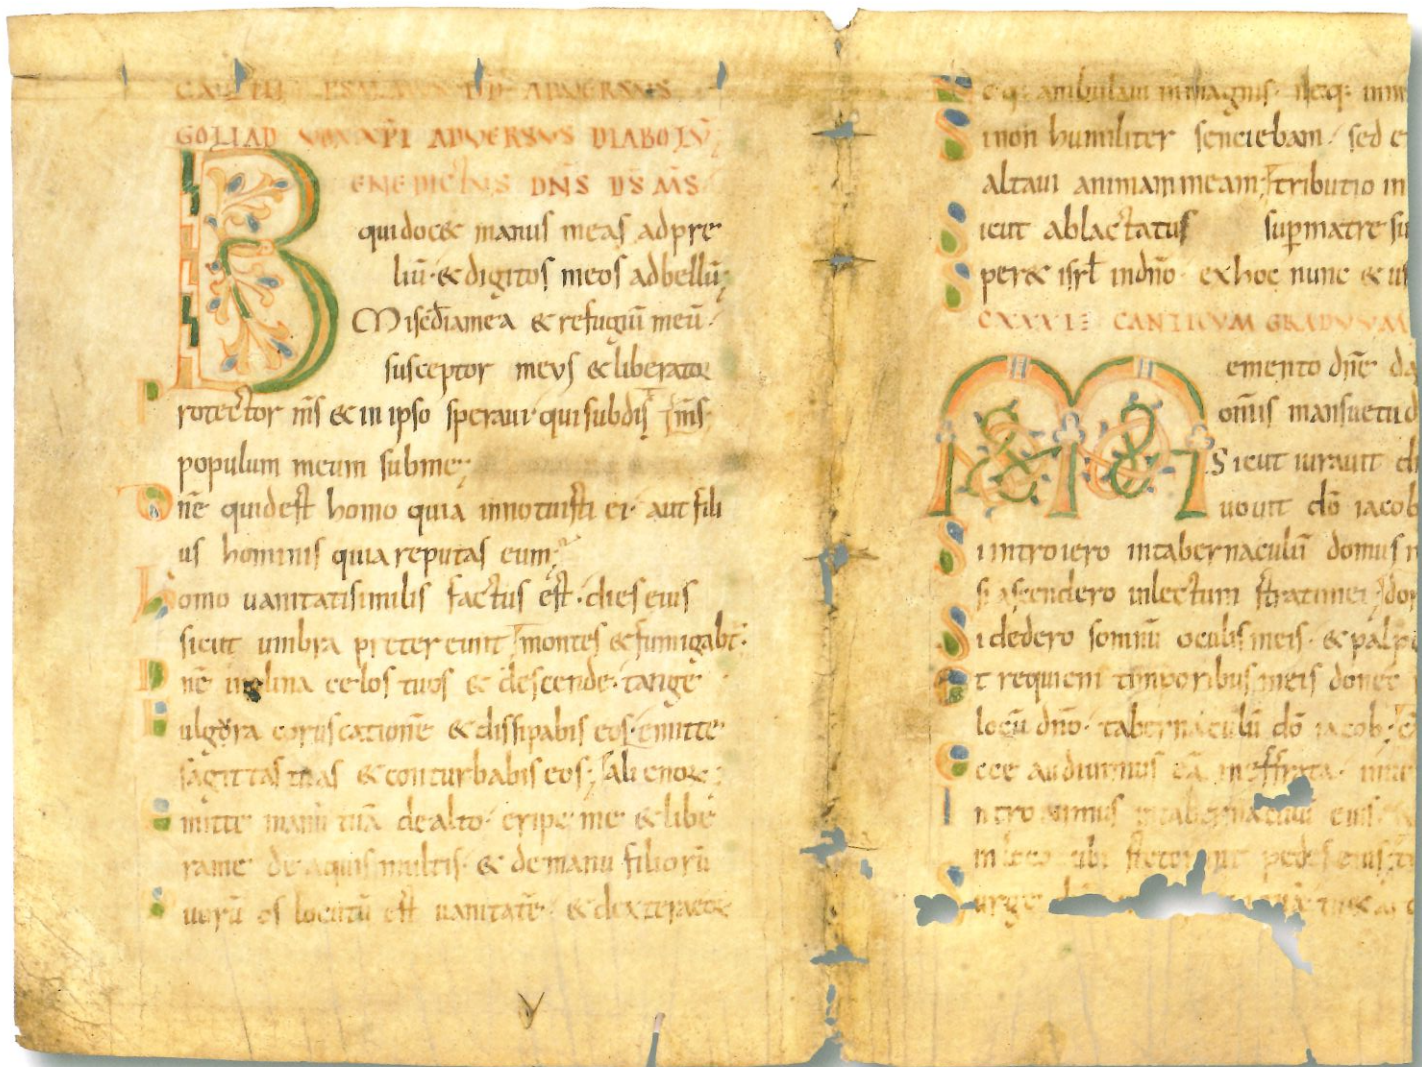 CXLIII PSALMUS DD ADUERSUS
GOLIAD ADUERSUS DIABOLŪ;
BENEDICTUS DN̄S DS̄ MS̄
qui doc& manus meas ad pre
liū· & digitos meos ad bellū;
Misc̄dia mea & refugiū meū·
susceptor meus & liberator
Protector ms̄ & in ipso speraui· qui subdis
populum meum sub me;
Dn̄e quid est homo quia innotuisti ei· aut fili
us hominis quia reputas eum;
Homo uanitati similis factus est· dies eius
sicut umbra pretereunt montes & fumigabt̄·
Dn̄e inclina celos tuos & descende· tange
Fulgora coruscationē & dissipabis eos; emitte
sagittas tuas & conturbabis eos;
Emitte manū tuā de alto· eripe me & libe
ra me de aquis multis· & de manu filiorū
Quorū os locutū est uanitatē· & dextera eor
Neq: ambulaui in magnis· neq: in mi
Si non humiliter senciebam· sed e
altaui animam meam; tributio in
Sicut ablactatus sup matre su
Sper& isrł in dn̄o· ex hoc nunc & us
CXXXI CANTICUM GRADUUM
Memento dn̄e da
omis mansuetud
Sicut iurauit
uouit dō iacob
Si introiero in tabernaculū domus m
si ascendero in lectum strati mei;
Si dedero somnū oculis meis· & palpe
Et requiem timporibus meis donec
locū dn̄o· tabernaculū dō iacob;
Ecce audiuimus eā in effrata·
Introiuimus in tabernaculū eius·
in loco ubi steterunt pedes eius;
Surge